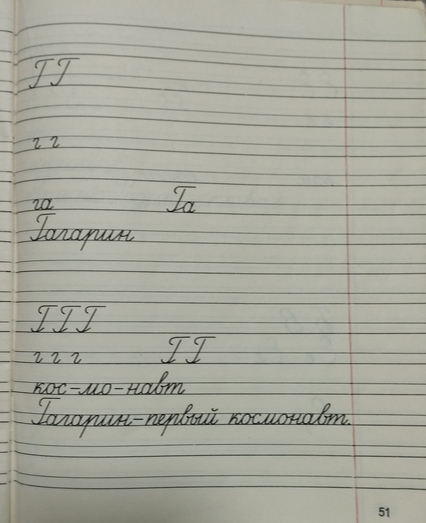 Г Г
г г
га Га
Гагарин
Г Г Г
г г г Г Г
кос-мо-навт
Гагарин-первый космонавт.
51